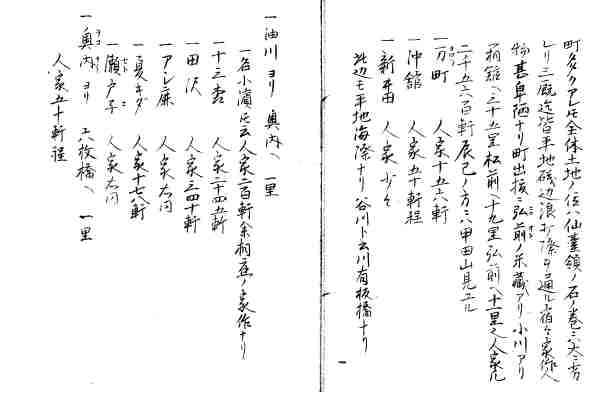 町多クアレ圧全体土地ノ位ハ仙臺領ノ石ノ巻ニ大ニ劣
レリ三厩迄皆平地磯辺浪打際ヲ通ル宿々家作人
物甚卑陋ナリ町出抜ニ弘前ノ米藏アリ小川アリ
箱舘ヘ三十五里松前ヘ三十九里弘前ヘ十一里之人家凡
二千五六百軒辰己ノ方ニ八甲田山見エル
一万町 人家十五六軒
一沖舘 人家五十軒程
一新井田 人家少々
此辺モ平地海際ナリ谷川ト云川有板橋ナリ
一油川ヨリ奥内ヘ 一里
一名小濱氏云人家二百軒余相應ノ家作ナリ
一十三杢 人家二十四五軒
一田沢 人家三四十軒
一アシ廉 人家右同
一夏キダ 人家十七八軒
一瀬戸子 人家右同
一奥内ヨリ 六枚橋ヘ 一里
人家五十軒程